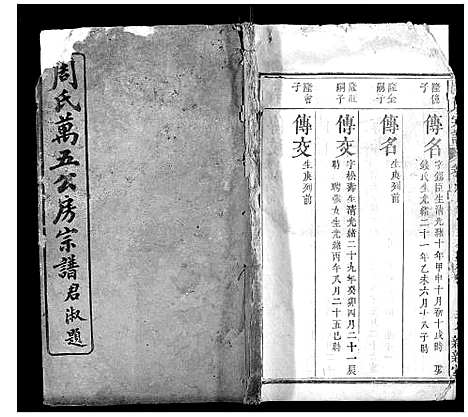 周氏萬五公房宗譜
君淑題
隆億子
傳名
字錫臣生清光緒十年甲申十月初十戌時娶
錢氏生光緒二十一年乙未六月十八子時
隆金嗣子
傳名
生庚列前
嗣子
傳交
字松壽生清光緒二十九年癸卯四月二十一辰
時聘張女生光緒丙午八月二十五巳時
隆會子
傳交
生庚列前